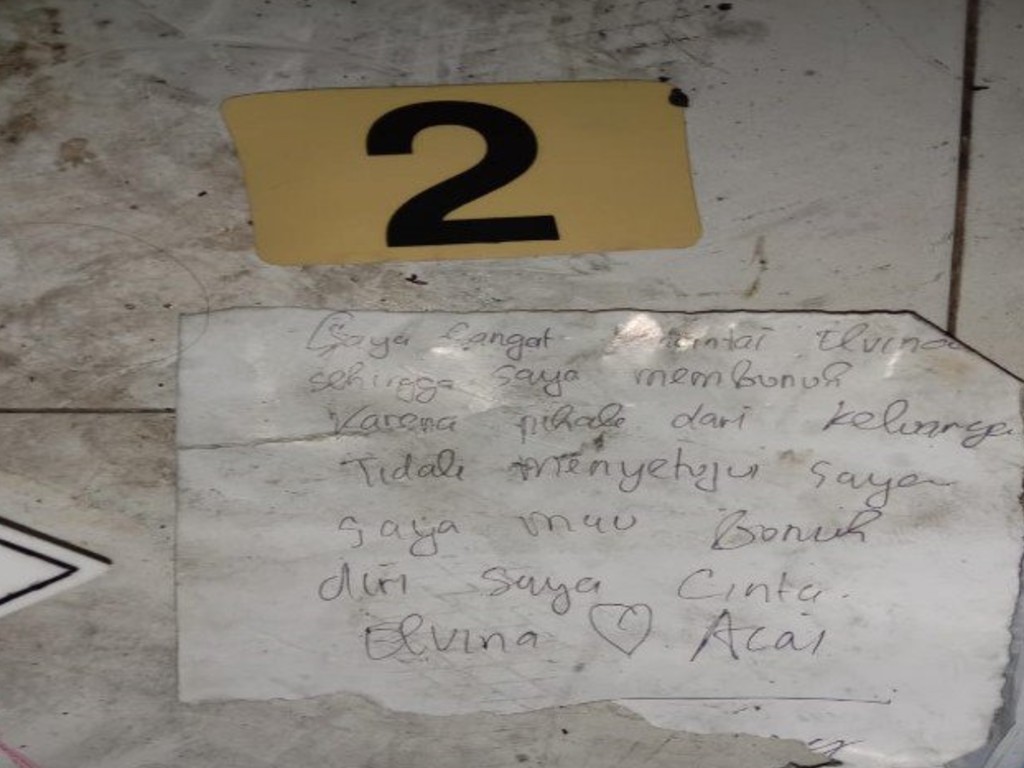 2
Saya sangat mencintai Elvina
sehingga saya membunuh
karena pihak dari keluarga
Tidak menyetujui saya
saya mau Bonuh
diri saya Cinta.
Elvina ♡ Acai